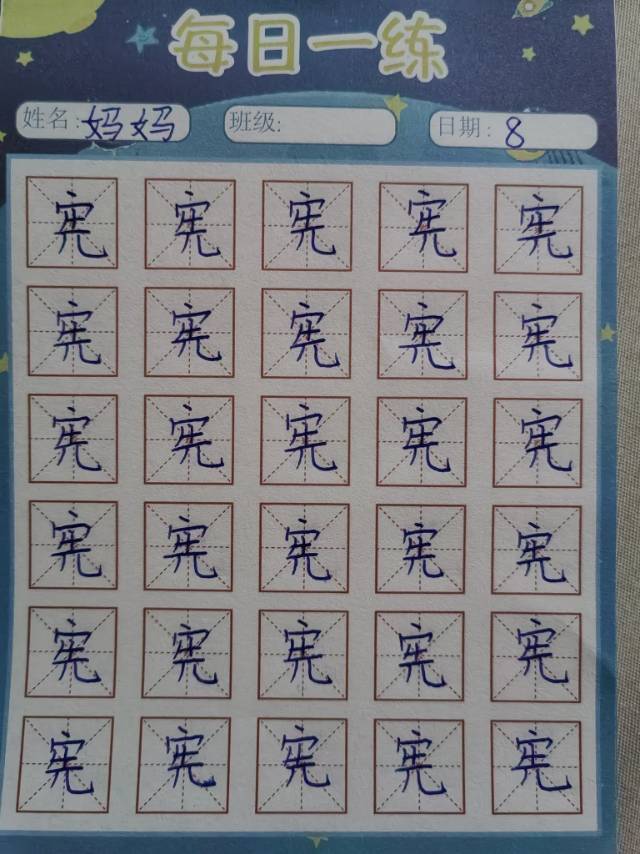 每日一练
姓名: 妈妈 班级: 日期: 8
宪 宪 宪 宪 宪
宪 宪 宪 宪 宪
宪 宪 宪 宪 宪
宪 宪 宪 宪 宪
宪 宪 宪 宪 宪
宪 宪 宪 宪 宪